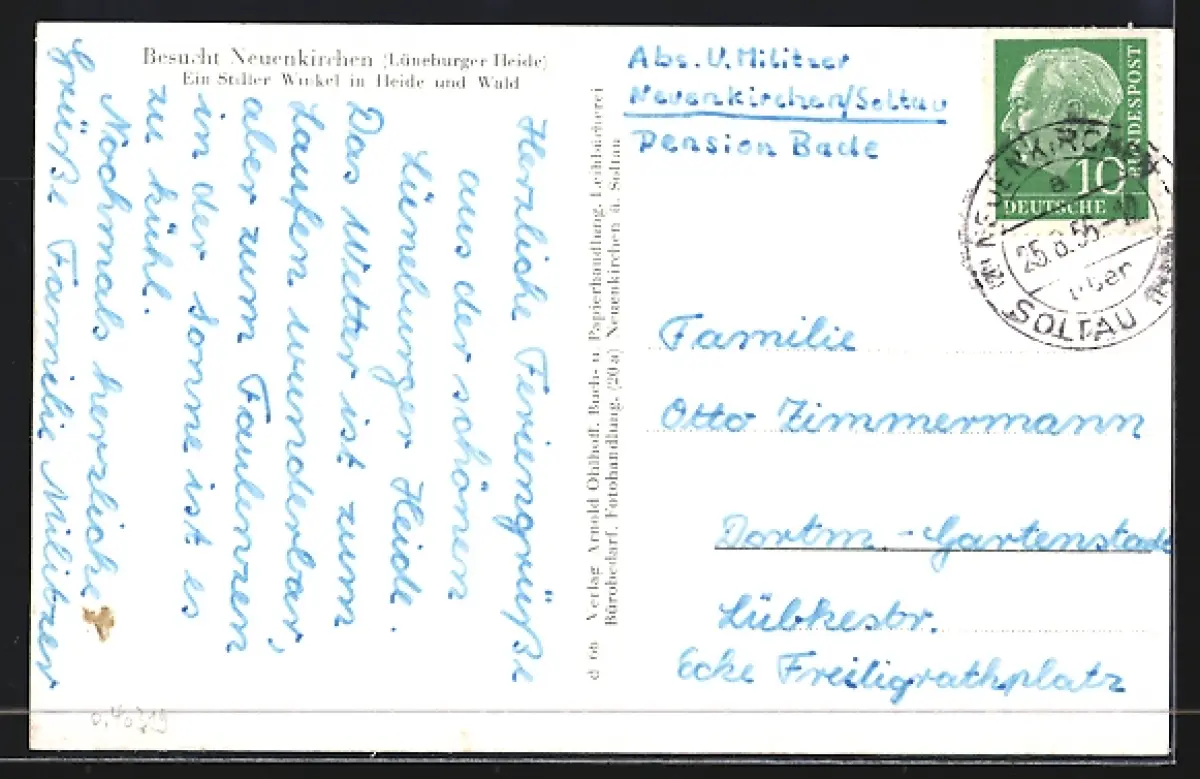 Besucht Neuenkirchen (Lüneburger Heide)
Ein Stiller Winkel in Heide und Wald
Herzliche Feriengrüße
aus der schönen
Lüneburger Heide.
Das Wetter ist zum
Laufen wunderbar,
aber zum Faulenzen
in der Sonne ist es
zu kühl.
Nochmals herzliche
Grüße Familie Militzer
Verlag Arnold Ohlhoff, Buch- u. Papierhandlung, Leihbücherei
Bürobedarf, Fotohandlung, (20a) Neuenkirchen ü. Soltau
Abs. U. Militzer
Neuenkirchen/Soltau
Pension Bade
DEUTSCHE
BUNDESPOST
10
NEUENKIRCHEN
a
25.8.55
über
SOLTAU
Familie
Otto Zimmermann
Dortm.-Gartenstadt
Lübkestr.
Ecke Freiligrathplatz